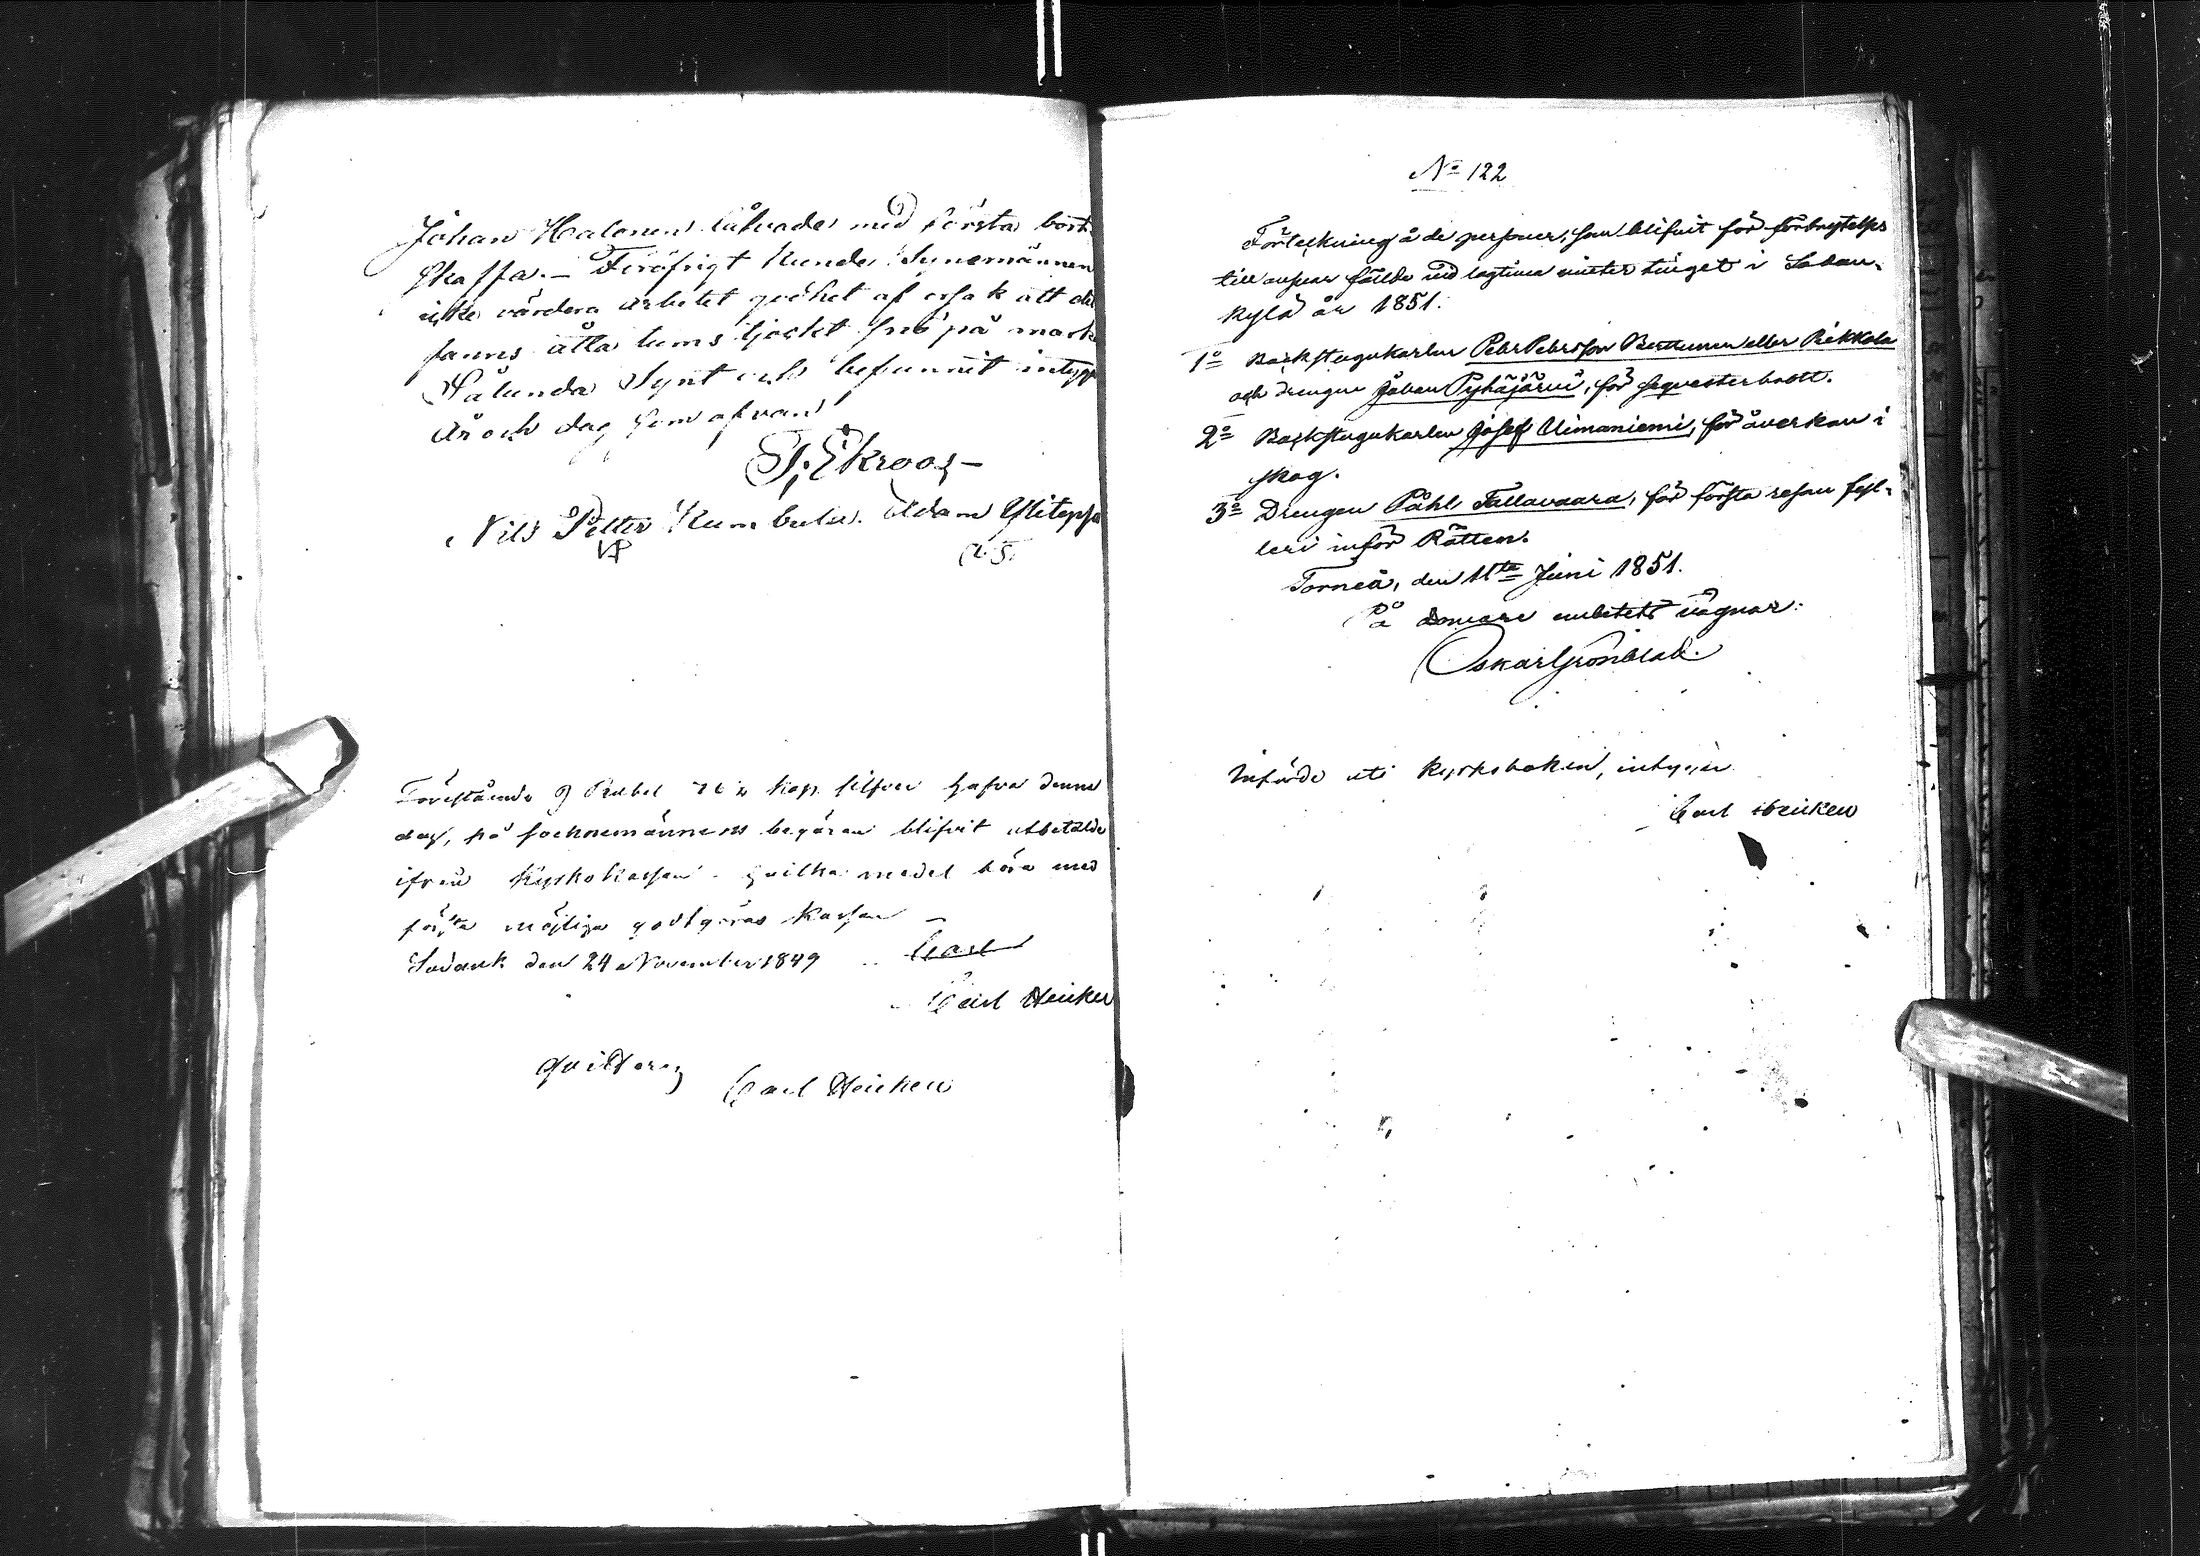 Johan Halonen låfvade med första bort
skaffa. – Föröfrigt kunde Synemännen
icke värdera arbetet qvöket af orsak att det
fanns åtta tums tjockt snö på mark
Sålunda Synt och befunnit intyga
År och dag som ofvan
J. Ekroos –
Nils Petter Kumbula. Adam Ylitepsa
Förestående 9 Rubel 76½ kop. silfver hafva denna
dag, på socknemännens begäran blifvit utbetalde
ifrån Kyrkokassan. hvilka medel böra med
första möjliga godtgöras Kassan –
Sodank den 24 November 1849 Carl
Carl Heicken
Qvitteras
Carl Heicken
No 122
Förteckning å de personer, som blifvit för förbrytelser
till ansvar fällde vid lagtima vinter tinget i Sodan-
kylä år 1851.
1o Backstugukarlen Pehr Pehrsson Berttunen eller Rikkola
och drengen Johan Pyhäjärvi, för seqvesterbrott.
2o Backstugukarlen Josef Uimaniemi, för åverkan i
skog.
3o Drengen Påhl Tallavaara, för första resan fyl-
leri inför Rätten.
Torneå, den 11te Juni 1851.
På domare embetets vägnar:
Oskar Grönblad.
Införde uti kyrkoboken, intygar
Carl Heicken